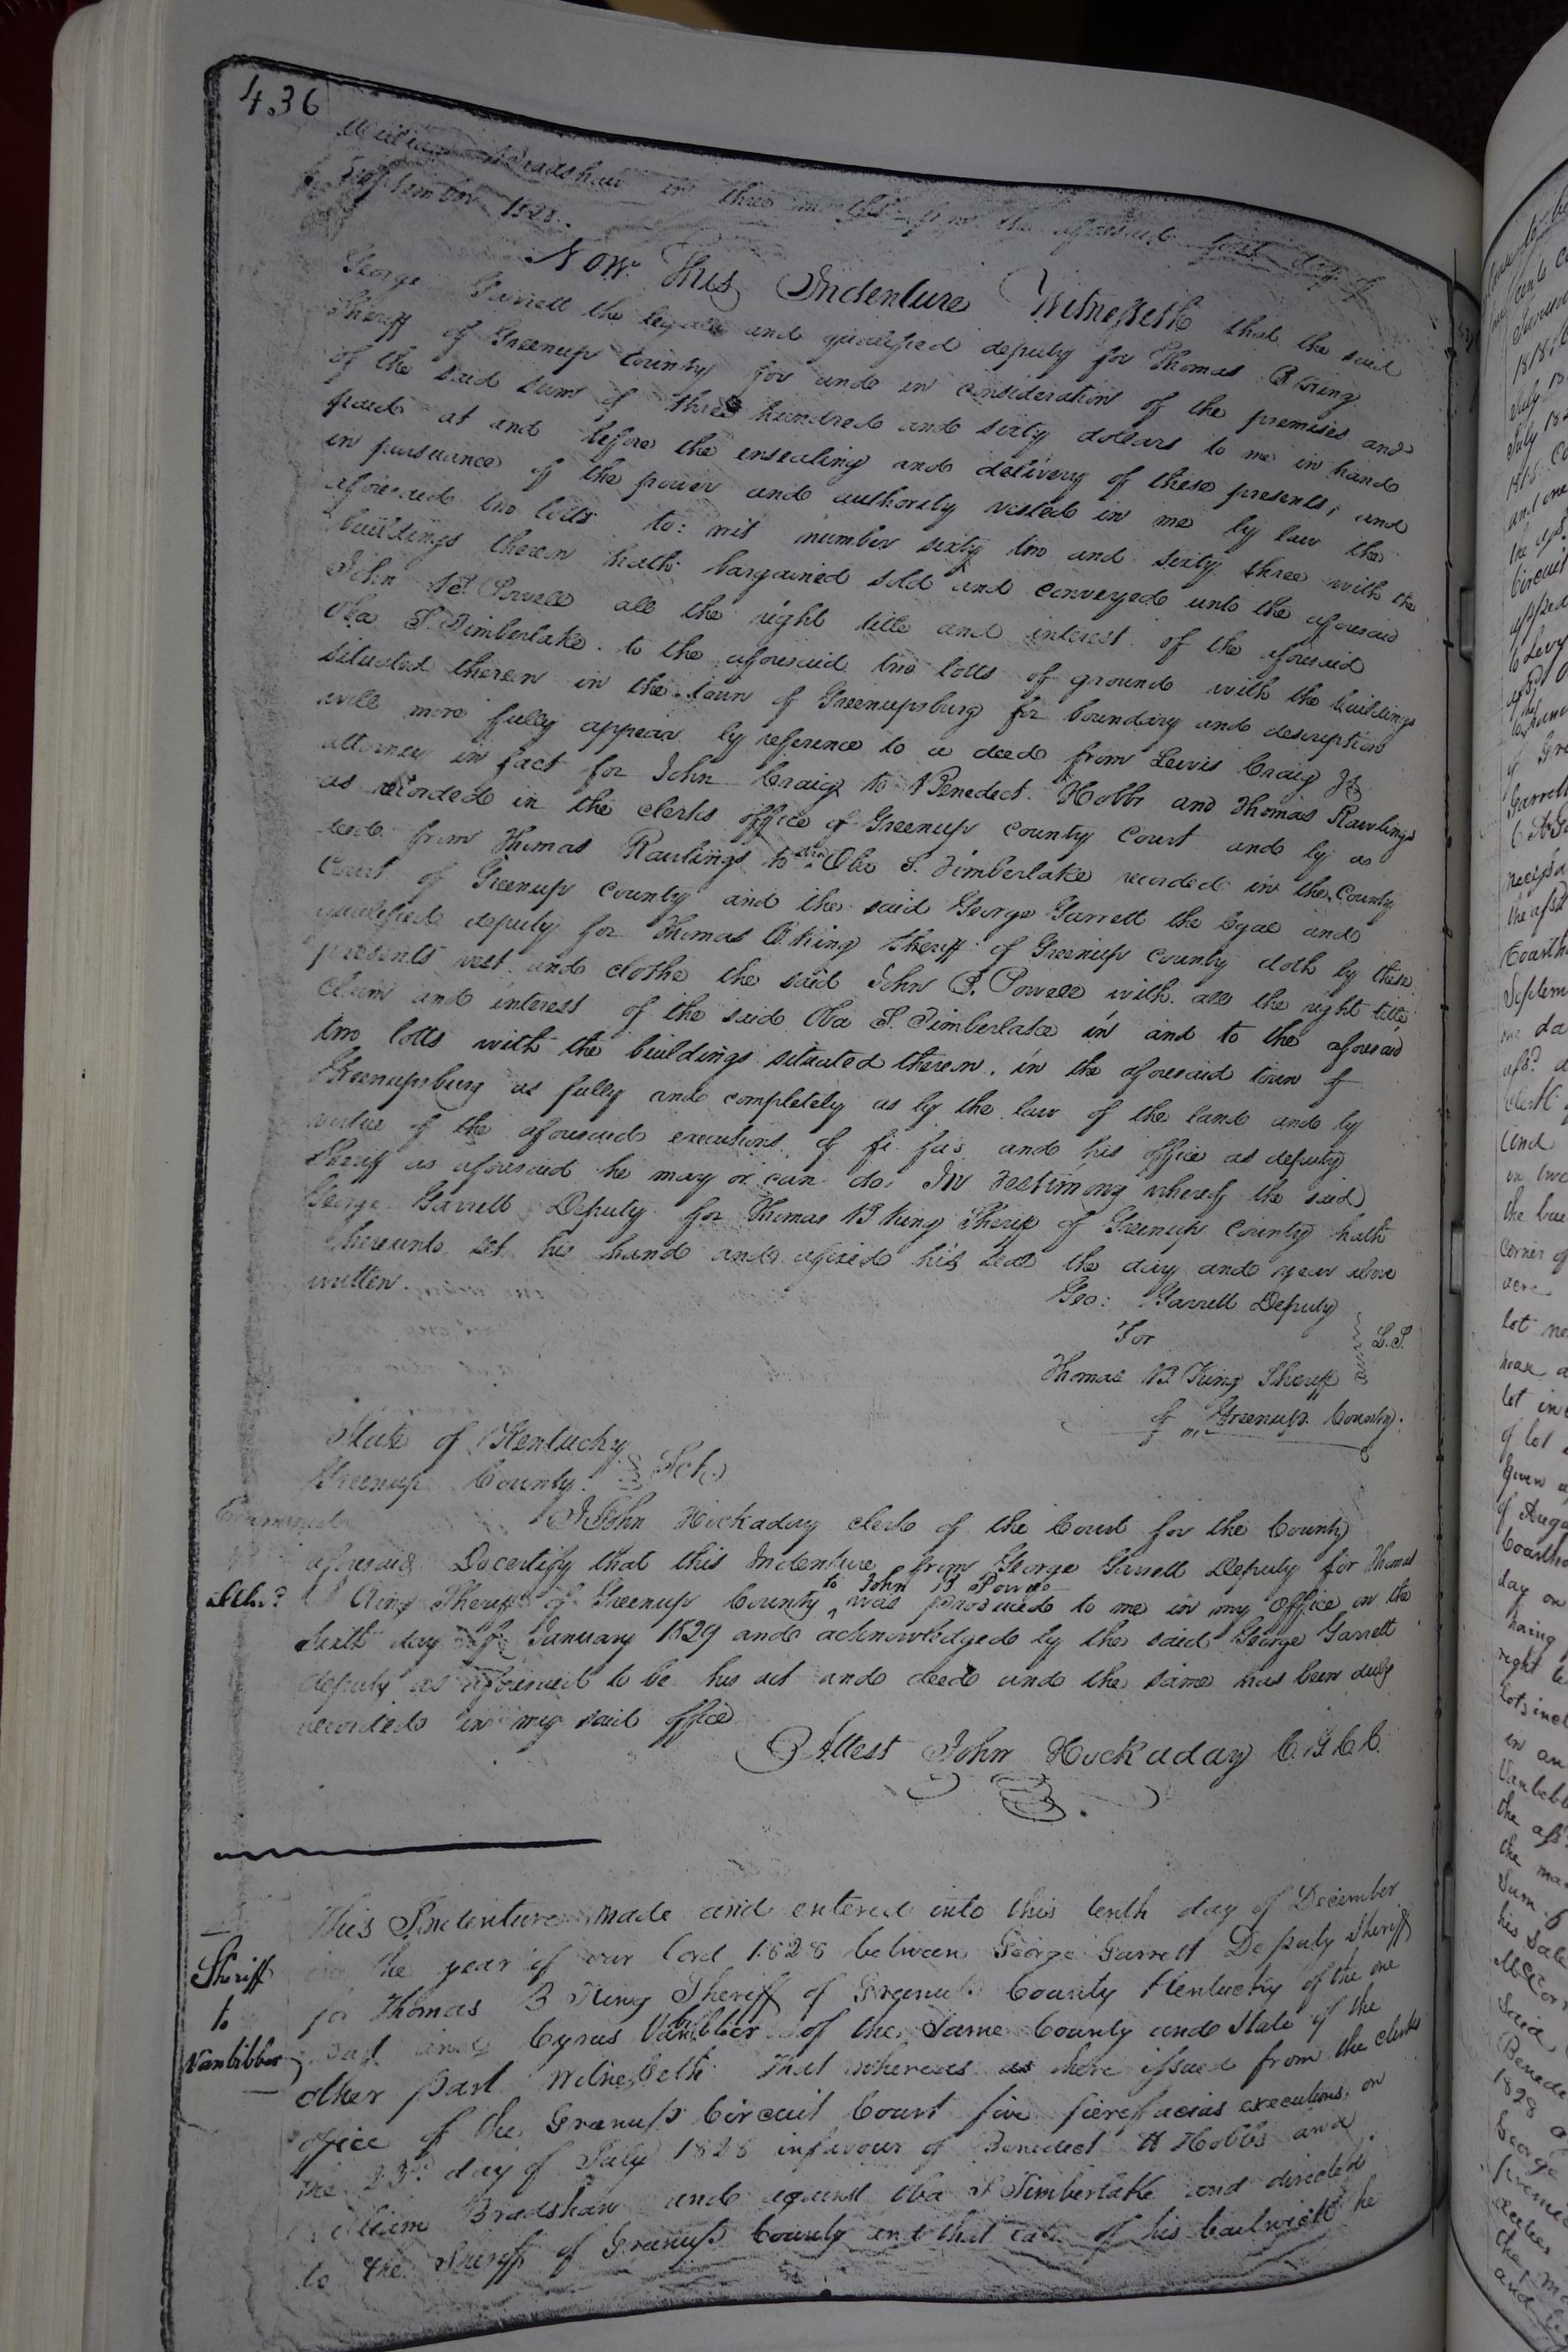 436
William Bradshaw in three months from the aforesaid first day of
September 1828.
Now This Indenture Witnesseth that the said
George Garrett the legal and qualified deputy for Thomas B King
Sheriff of Greenup County for and in consideration of the premises and
of the said sum of three hundred and sixty dollars to me in hand
paid at and before the ensealing and delivery of these presents, and
in pursuance of the power and authority vested in me by law the
aforesaid two lotts to: wit number sixty two and sixty three with the
buildings thereon hath bargained sold and conveyed unto the aforesaid
John Powell all the right title and interest of the aforesaid
Oba S. Timberlake to the aforesaid two lotts of ground with the buildings
situated thereon in the town of Greenupsburg for boundary and description
will more fully appear by reference to a deed from Lewis Craig
attorney in fact for John Craig to Benedect Hobbs and Thomas Rawlings
as recorded in the clerks office of Greenup County Court and by as
deed from Thomas Rawlings to Oba S. Timberlake recorded in the County
Court of Greenup County and the said George Garrett the legal and
qualified deputy for Thomas B King Sheriff of Greenup County doth by these
presents vest and clothe the said John B. Powell with all the right title
claim and interest of the said Oba S. Timberlake in and to the aforesaid
two lotts with the buildings situated thereon, in the aforesaid town of
Greenupsburg as fully and completely as by the law of the land and by
virtue of the aforesaid executions of fi fas and his office as deputy
Sheriff as aforesaid he may or can do, In Testimony whereof the said
George Garrett Deputy for Thomas B King Sheriff of Greenup County hath
hereunto set his hand and afixed his seal the day and year above
written.
Geo: Garrett Deputy
For
L.S.
Thomas B King Sheriff
of Greenup County.
State of Kentucky
Greenup County. Sct.
Examined
I John Hockaday clerk of the Court for the County
aforesaid Do certify that this Indenture from George Garrett Deputy for Thomas
B King Sheriff of Greenup County to John B Powell was produced to me in my Office on the
sixth day of January 1829 and acknowledged by the said George Garrett
deputy as aforesaid to be his act and deed and the same has been duly
recorded in my said office
Attest John Hockaday C.G.C.C.
Sheriff
to
Vanbibber
This Indenture made and entered into this tenth day of December
in the year of our lord 1828 between George Garrett Deputy Sheriff
for Thomas B King Sheriff of Greenup County Kentucky of the one
part and Cyrus Vanbibber of the Same County and State of the
other part Witnesseth That whereas there issued from the clerks
office of the Greenup Circuit Court five fierefacias executions, on
the 23rd day of July 1828 in favour of Benedect H Hobbs and
William Bradshaw and against Oba S Timberlake and directed
to the Sheriff of Greenup County and that out of his bailwick he